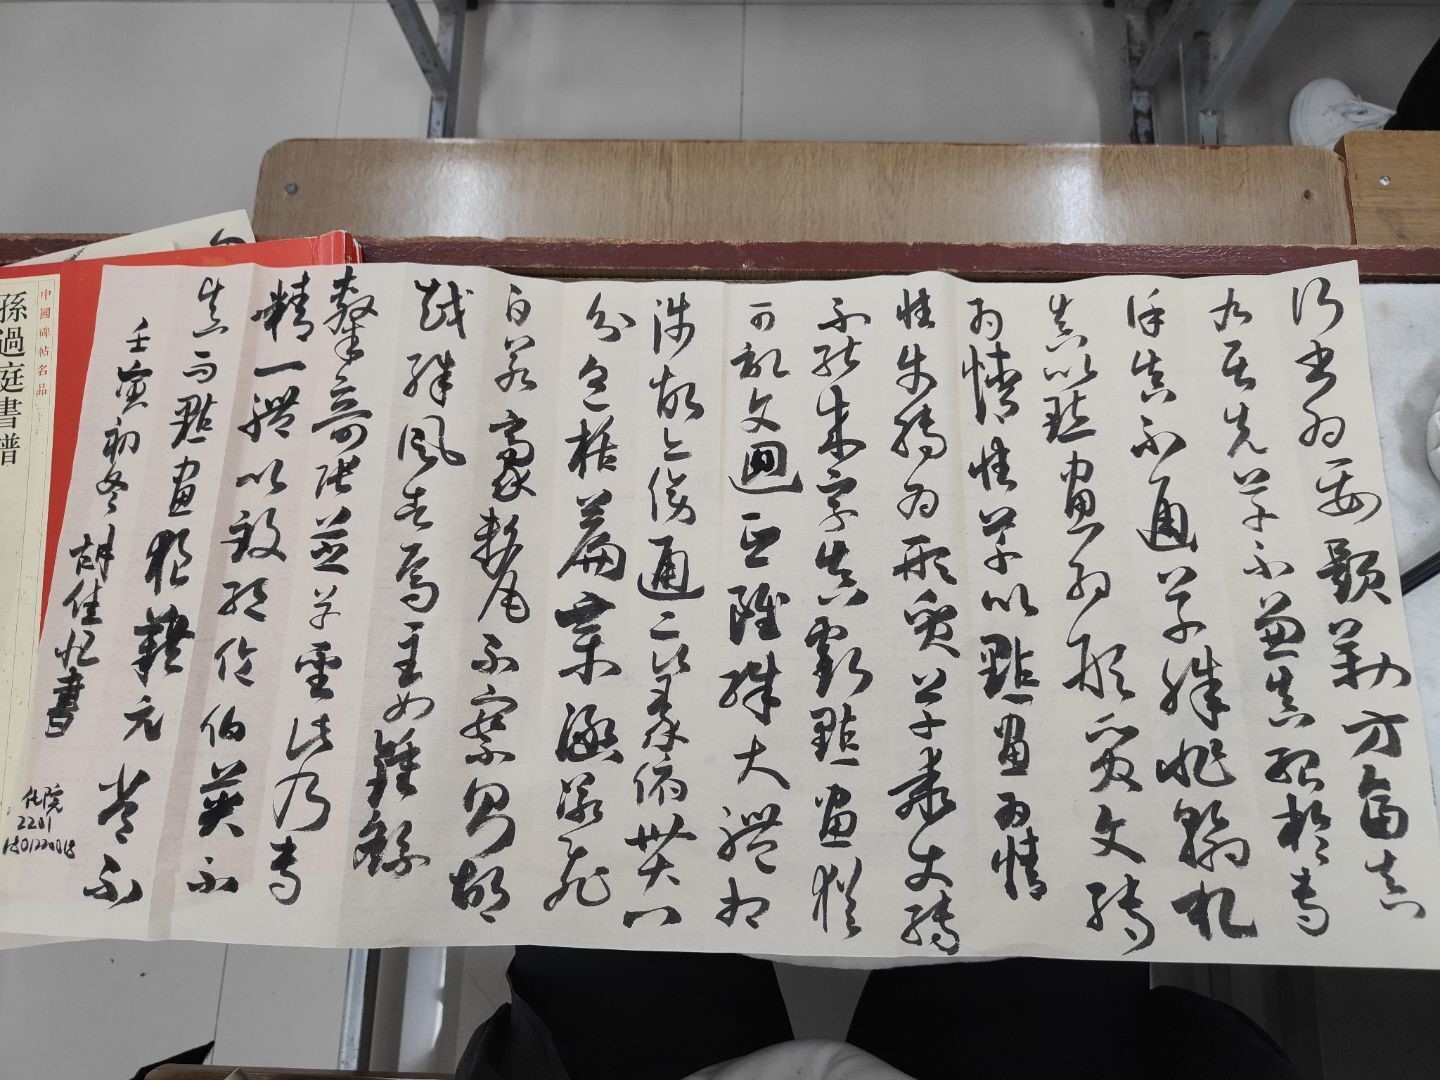 行書為要題勒方畐真
乃居先草不兼真殆於專
謹真不通草殊非翰札
真以點畫為形質使轉
為情性草以點畫為情
性使轉為形質草乖使轉
不能成字真虧點畫猶
可記文迴互雖殊大體相
涉故亦傍通二篆俯貫八
分包括篇章涵泳飛
白若豪釐不察則胡
越殊風者焉至如鍾繇
隸奇張芝草聖此乃專
精一體以致絕倫伯英不
真而點畫狼藉元常不
壬寅初冬胡佳忆書
化院
2201
中國碑帖名品
孫過庭書譜